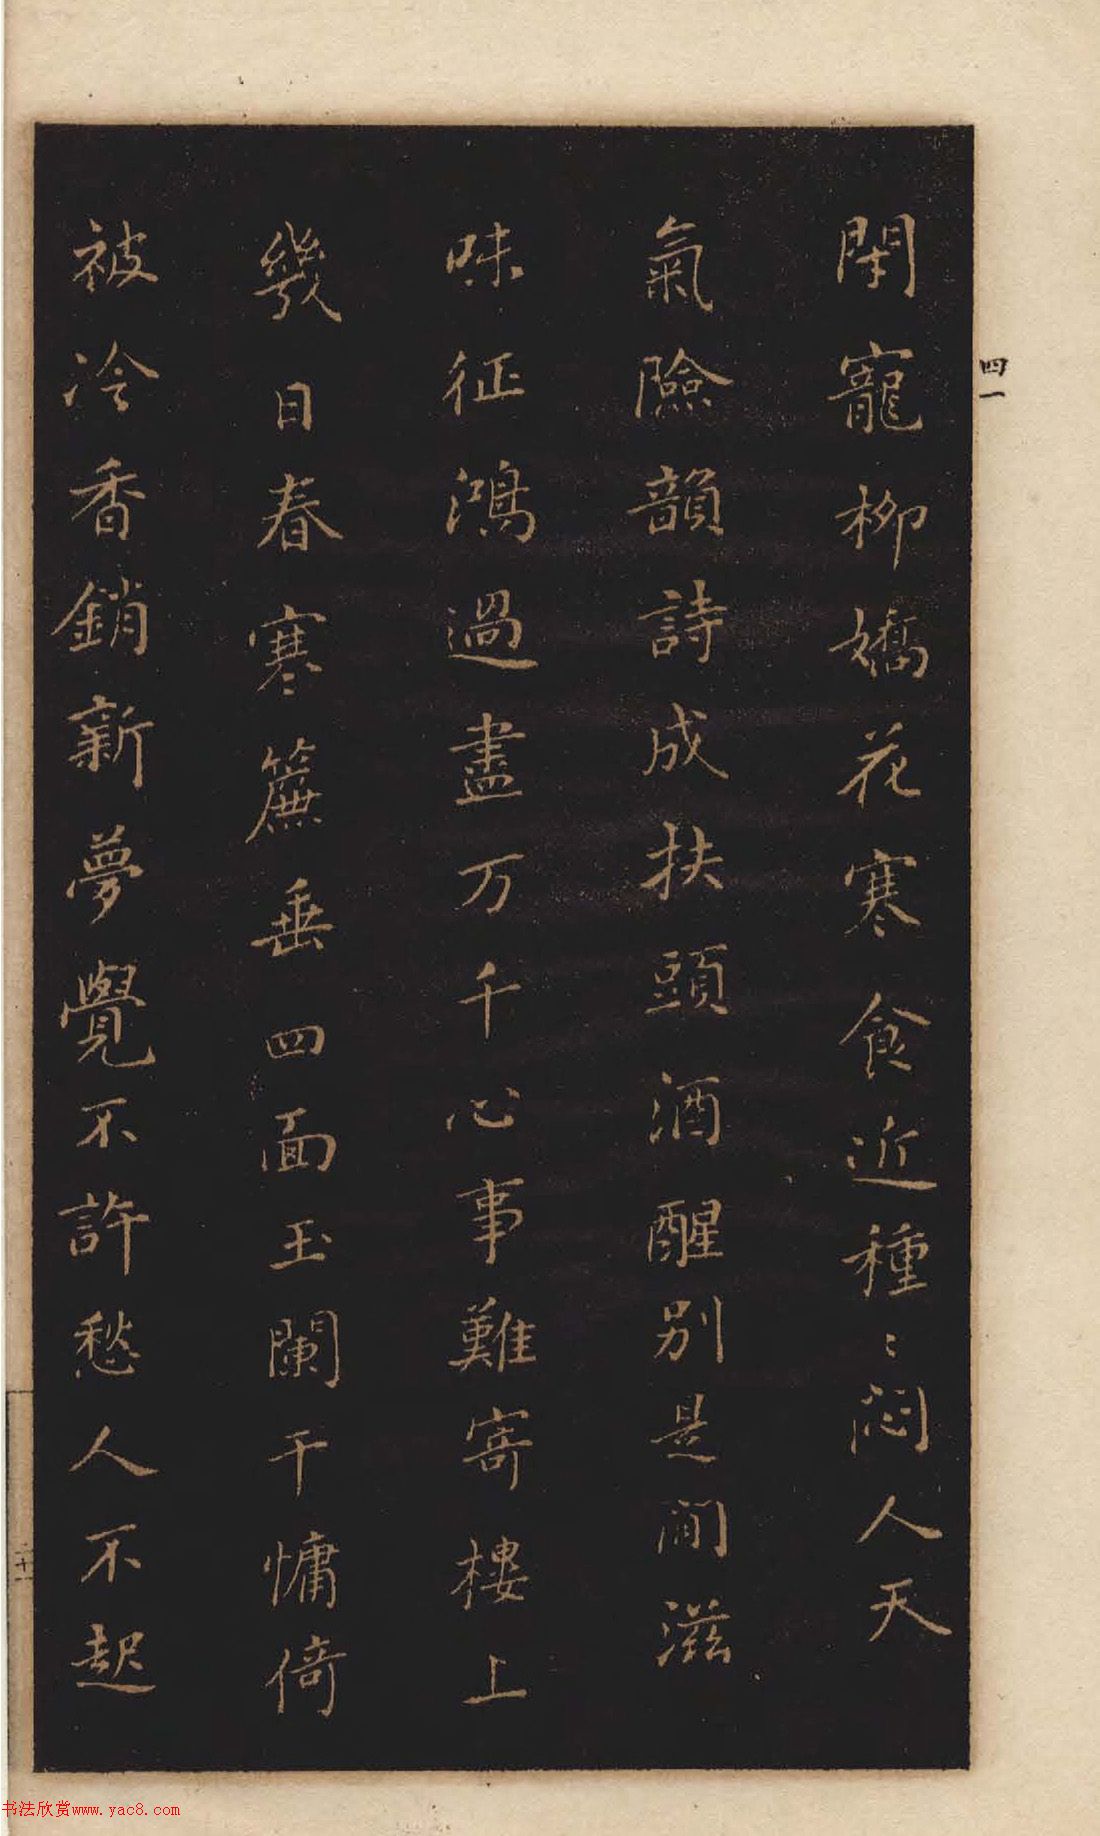 四一
閉寵柳嬌花寒食近種〻悶人天
氣險韻詩成扶頭酒醒別是閒滋
味征鴻過盡万千心事難寄樓上
幾日春寒簾垂四面玉闌干慵倚
被冷香銷新夢覺不許愁人不起
书法欣赏www.yac8.com